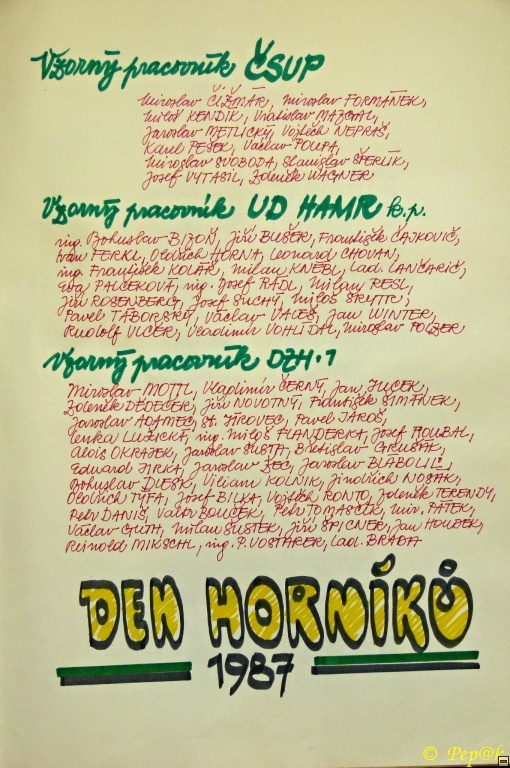 Vzorný pracovník ČSUP
Miroslav ČIŽMÁR, Miroslav FORMÁNEK,
Miloš KENDÍK, Vratislav MAZGAL,
Jaroslav METLICKÝ, Vojtěch NEPRAŠ,
Karel PEŠEK, Václav POUPA,
Miroslav SVOBODA, Stanislav ŠPERLÍK,
Josef VYTASIL, Zdeněk WAGNER
Vzorný pracovník UD HAMR k.p.
ing. Bohuslav BIZOŇ, Jiří BUŠEK, František ČAJKOVIČ,
Ivan FERKL, Oldřich HORNA, Leonard CHOVAN,
ing. František KOLÁŘ, Milan KNEBL, Lad. LANČARIČ,
PALCEKOVÁ, ing. Josef RÁDL, Milan RESL,
Jiří ROSENBERG, Josef SUCHÝ, Miloš
Pavel TÁBORSKÝ, Václav VALEŠ, Jan WINTER,
Rudolf VLČEK, Vladimír VOHLÍDAL, Miroslav POLZER
Vzorný pracovník DZH-1
Miroslav MOTTL, Vladimír ČERNÝ, Jan JUCEK,
Zdeněk DĚDEČEK, Jiří NOVOTNÝ, František ŠIMÁNEK,
Jaroslav ADAMEC, St. JÍROVEC, Pavel JAROŠ,
Lenka LUŽICKÁ, ing. Miloš FLANDERKA, Josef ROUBAL,
Alois OKRAJEK, Jaroslav ŠUSTA, Břetislav GRUŠÁK,
Eduard JIRKA, Jaroslav BEC, Jaroslav BLABOLIL,
Bohuslav DLESK, Viliam KOLNÍK, Jindřich NOSÁK,
Oldřich TÝFA, Josef BILKA, Vojtěch RONTO, Zdeněk TERENDY,
Petr DANIŠ, Valér BOUČEK, Petr TOMÁŠEK, Mir. PÁTEK,
Václav GUTH, Milan ŠUSTEK, Jiří ŠPICNER, Jan HOUDEK,
Reinold MIKSCHL, ing. P. VOSTÁREK, Lad. BRADA
DEN HORNÍKŮ
1987
© Pep@k